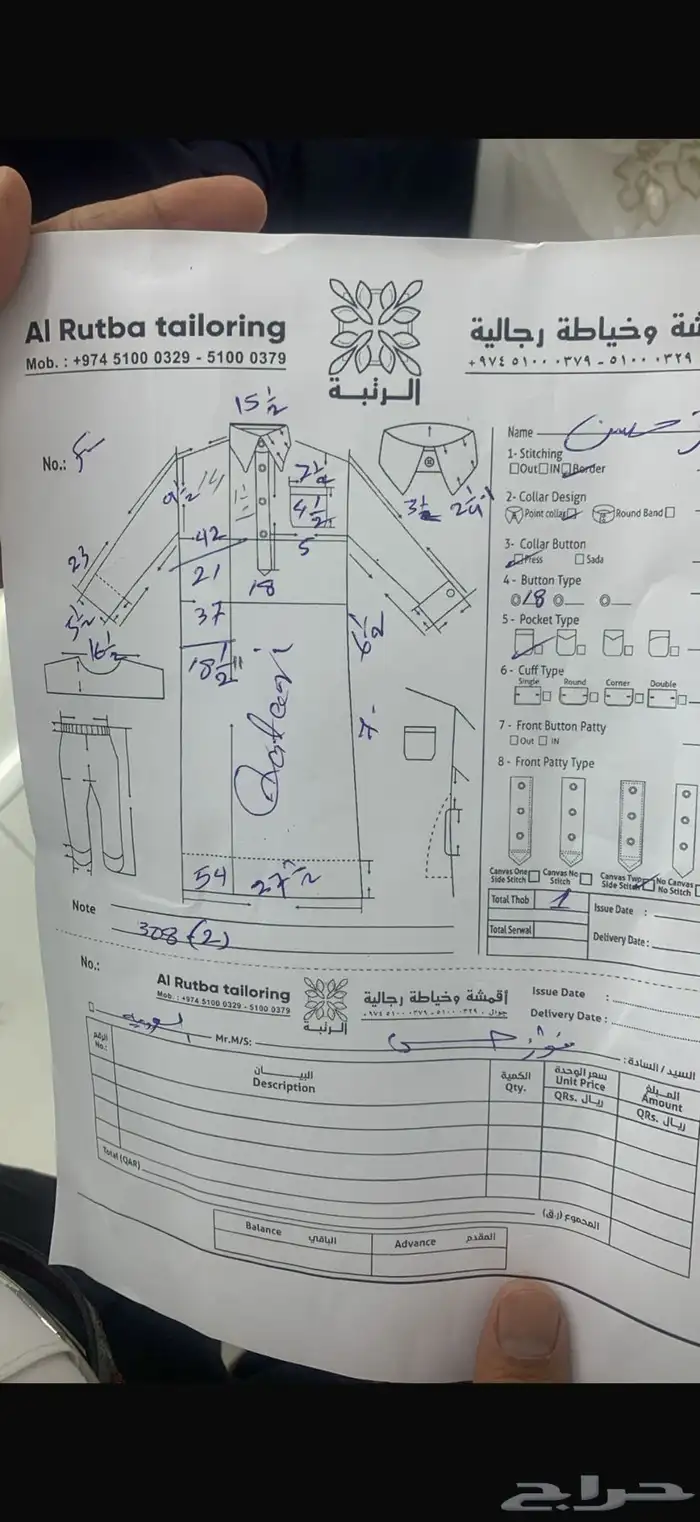 Al Rutba tailoring
Mob. : +974 5100 0329 - 5100 0379
الرتبة
شة وخياطة رجالية
+٩٧٤ ٥١٠٠ ٠٣٧٩ - ٥١٠٠ ٠٣٢٩
No.:
15 1/2
9 1/2
14
7 1/2
4 1/2
5
3 1/2
2 1/4
42
23
21
18
37
5 1/2
16 1/2
18 1/2
6 1/2
7-
Qatari
54
27 1/2
Note
308 (2)
Name
حسن
1- Stitching
Out IN Border
2- Collar Design
Point collar Round Band
3- Collar Button
Press Sada
4 - Button Type
18
5 - Pocket Type
6 - Cuff Type
Single Round Corner Double
7 - Front Button Patty
Out IN
8 - Front Patty Type
Canvas One Side Stitch Canvas No Stitch Canvas Two Side Stitch No Canvas No Stitch
Total Thob 1 Issue Date :
Total Serwal Delivery Date :
No.:
Al Rutba tailoring
Mob. : +974 5100 0329 - 5100 0379
الرتبة
أقمشة وخياطة رجالية
جوال: ٥١٠٠٠٣٢٩ - ٥١٠٠٠٣٧٩ ٩٧٤+
Issue Date :
Delivery Date :
Mr.M/S: السيد / السادة :
الرقم No.: البيـــان Description الكمية Qty. سعر الوحدة Unit Price المبلغ Amount
QRs. ريال QRs. ريال
Total (QAR) المجموع (ر.ق)
Balance الباقي Advance المقدم
حراج